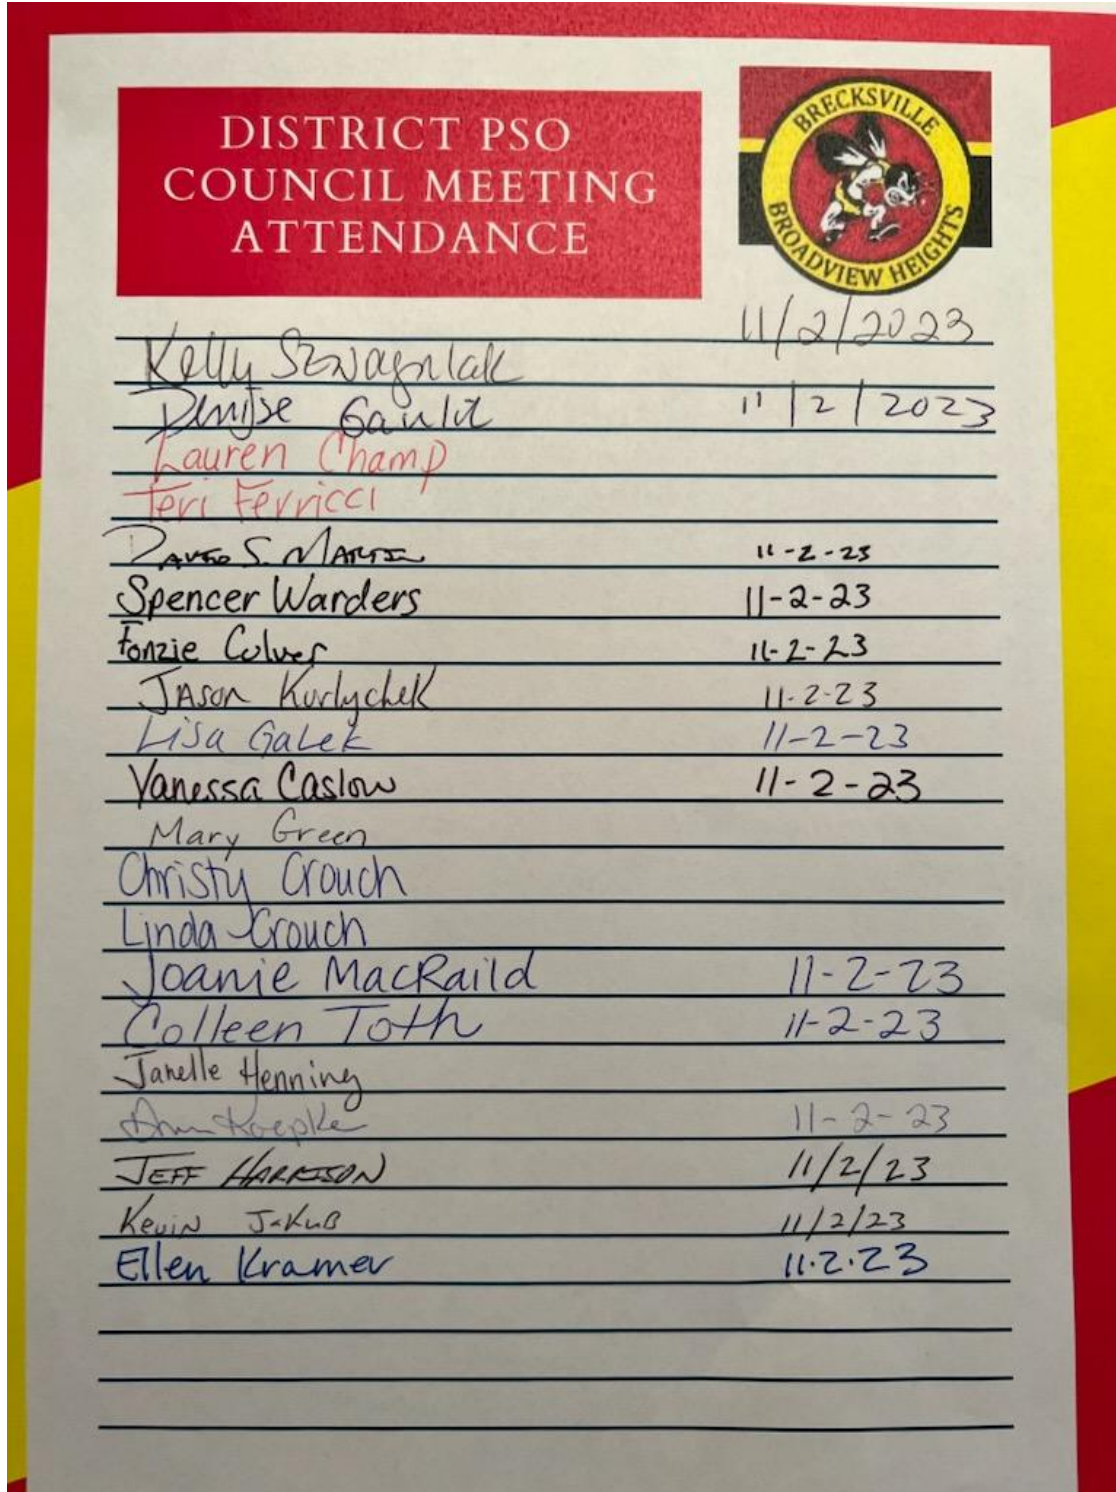 DISTRICT PSO
COUNCIL MEETING
ATTENDANCE
BRECKSVILLE
BROADVIEW HEIGHTS
11/2/2023
Kelly Szwagulak
Denise Gault 11/2/2023
Lauren Champ
Teri Ferricci
DAVID S. MARTIN 11-2-23
Spencer Warders 11-2-23
Fonzie Culver 11-2-23
JASON Kurlychek 11-2-23
Lisa GaLek 11-2-23
Vanessa Caslow 11-2-23
Mary Green
Christy Crouch
Linda Crouch
Joanie MacRaild 11-2-23
Colleen Toth 11-2-23
Janelle Henning
Koepke 11-2-23
JEFF HARRISON 11/2/23
Kevin JaKuB 11/2/23
Ellen Kramer 11.2.23